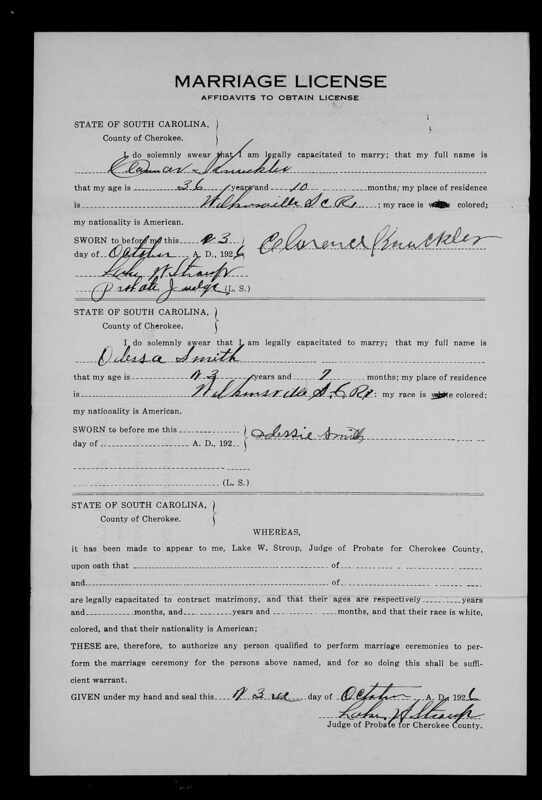 MARRIAGE LICENSE
AFFIDAVITS TO OBTAIN LICENSE
STATE OF SOUTH CAROLINA,
County of Cherokee.
I do solemnly swear that I am legally capacitated to marry; that my full name is
Knuckler
that my age is 36 years and 10 months; my place of residence
is Wilkinsville S C R1 ; my race is colored;
my nationality is American.
SWORN to before me this 23 Clarence Knuckler
day of October A. D., 1926
Lake W Stroup
Probate Judge (L. S.)
STATE OF SOUTH CAROLINA,
County of Cherokee.
I do solemnly swear that I am legally capacitated to marry; that my full name is
Odessa Smith
that my age is 23 years and 7 months; my place of residence
is Wilkinsville S. C. R1 : my race is white colored;
my nationality is American.
SWORN to before me this Odessie Smith
day of A. D., 192
(L. S.)
STATE OF SOUTH CAROLINA,
County of Cherokee.
WHEREAS,
it has been made to appear to me, Lake W. Stroup, Judge of Probate for Cherokee County,
upon oath that of
and of
are legally capacitated to contract matrimony, and that their ages are respectively years
and months, and years and months, and that their race is white,
colored, and that their nationality is American;
THESE are, therefore, to authorize any person qualified to perform marriage ceremonies to per-
form the marriage ceremony for the persons above named, and for so doing this shall be suffi-
cient warrant.
GIVEN under my hand and seal this 23rd day of October A. D., 1926
Lake W Stroup
Judge of Probate for Cherokee County.